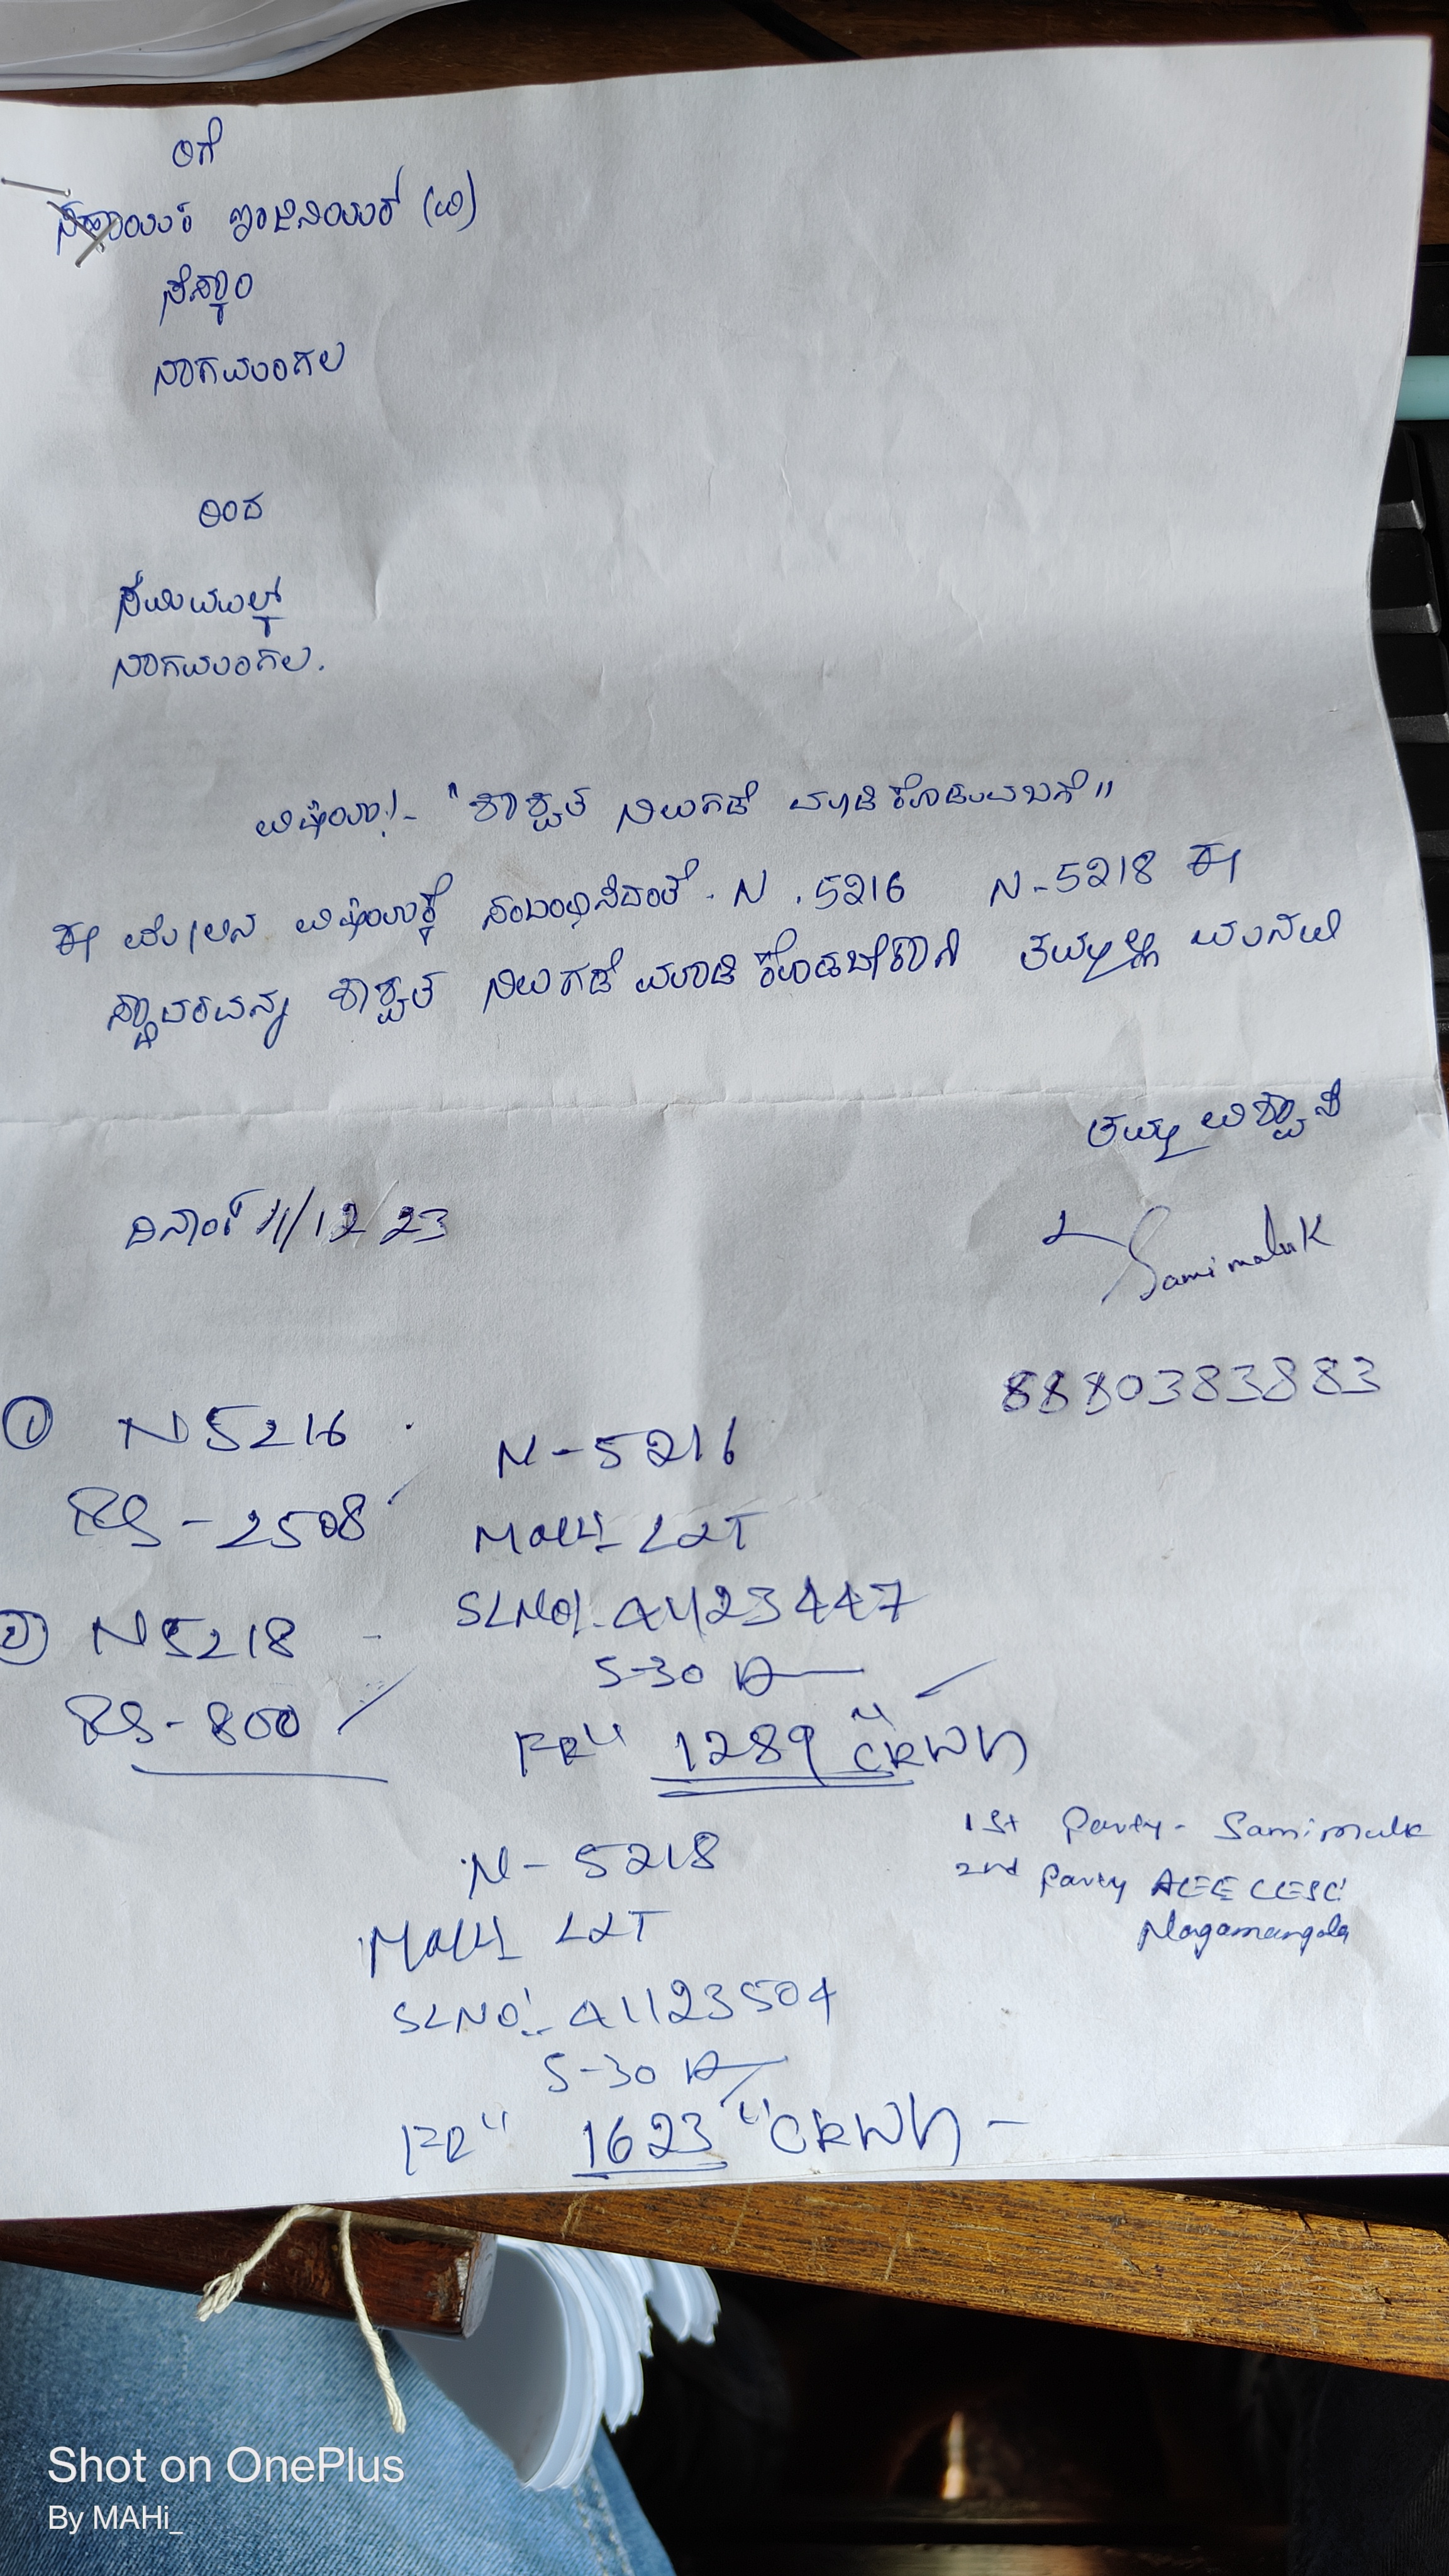 ರಿಗೆ
ಸಹಾಯಕ ಇಂಜಿನಿಯರ್ (ವಿ)
ಸೆಸ್ಕಾಂ
ನಾಗಮಂಗಲ
ರಿಂದ
ನಾಗಮಂಗಲ.
ವಿಷಯ:- "ಶಾಶ್ವತ ನಿಲುಗಡೆ ಮಾಡಿಕೊಡುವ ಬಗೆ"
ಈ ಮೇಲಿನ ವಿಷಯಕ್ಕೆ ಸಂಬಂಧಿಸಿದಂತೆ. N.5216 N-5218 ಈ
ಸ್ಥಾವರವನ್ನು ಶಾಶ್ವತ ನಿಲುಗಡೆ ಮಾಡಿ ಕೊಡಬೇಕಾಗಿ ತಮ್ಮಲ್ಲಿ ಮನವಿ
ತಮ್ಮ ವಿಶ್ವಾಸಿ
ದಿನಾಂಕ 11/12/23
Samimaluk
8880383883
① N5216
RS-2508
② N5218
RS-800
N-5216
L&T
SLNO:- 41123447
5-30 A
FR" 1289 "CKWh
N-5218
L&T
SLNO:- 41123504
5-30 A
FR" 1623 "CKWh
1st Party- Samimulk
2nd Party AEE CESC
Nagamangala
Shot on OnePlus
By MAHi_